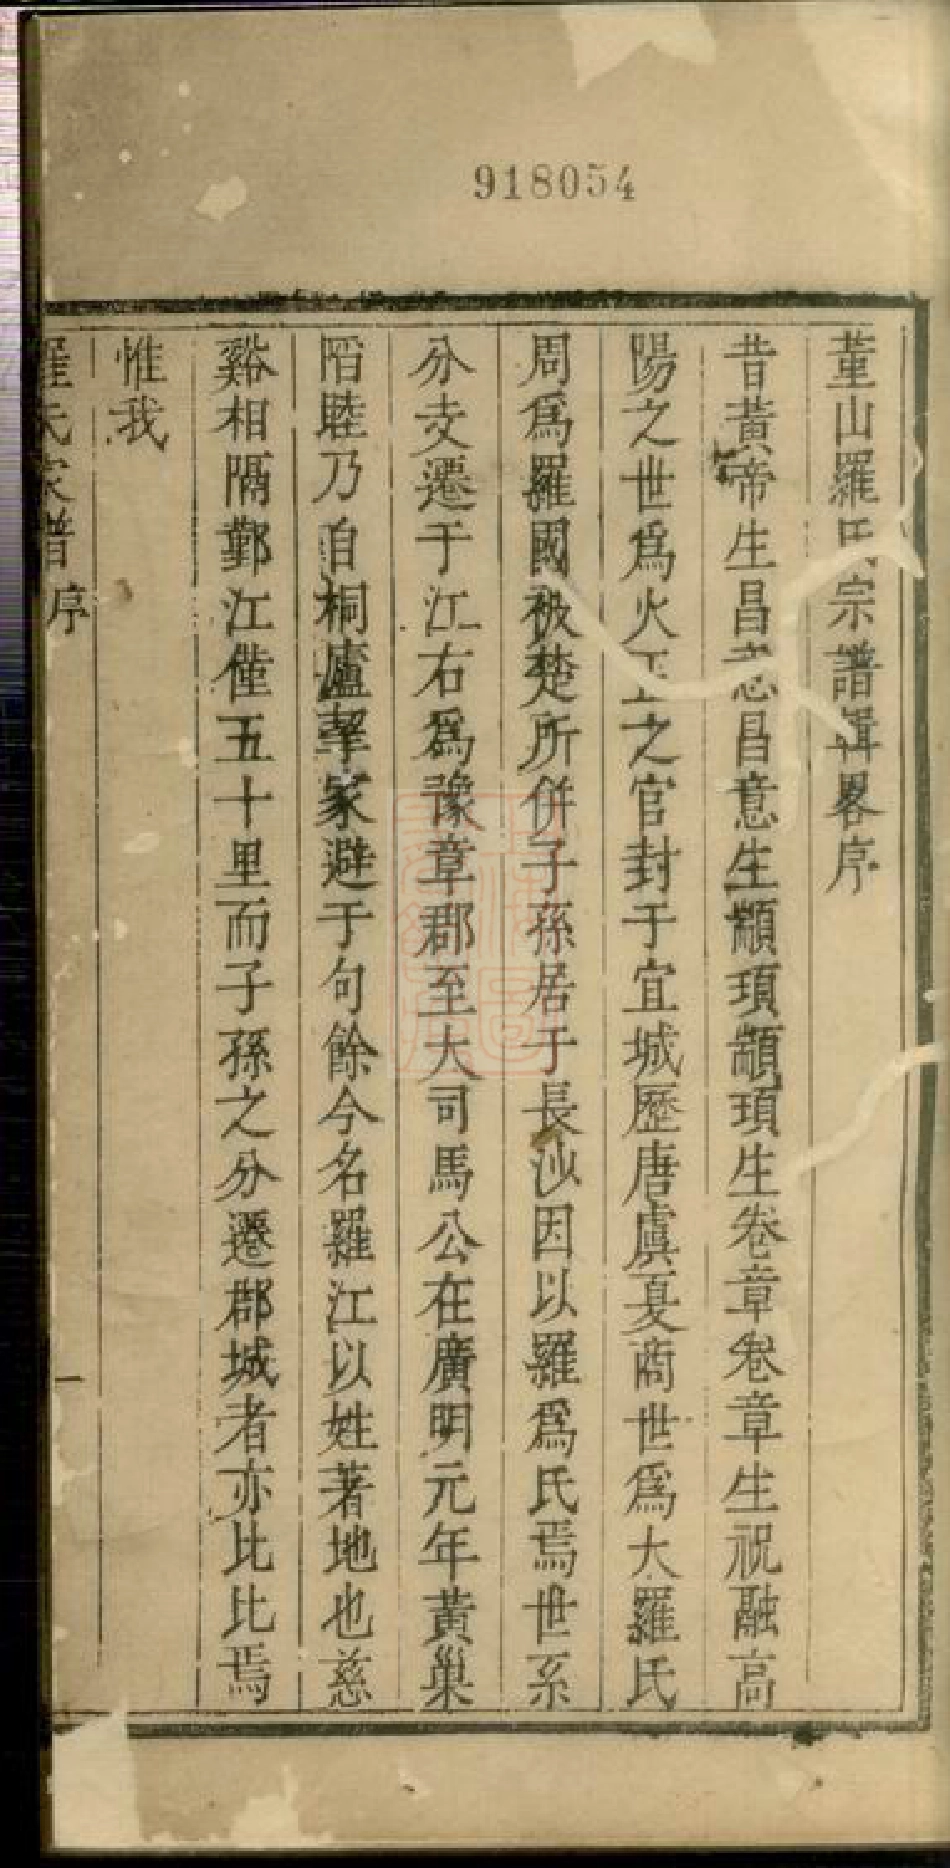 918054
董山羅氏宗譜輯畧序
昔黃帝生昌意昌意生顓頊顓頊生卷章卷章生祝融高
陽之世爲火正之官封于宜城歷唐虞夏商世爲大羅氏
周爲羅國被楚所併子孫居于長沙因以羅爲氏焉世系
分支遷于江右爲豫章郡至大司馬公在廣明元年黃巢
陷睦乃自桐廬挈家避于句餘今名羅江以姓著地也慈
谿相隔鄞江僅五十里而子孫之分遷郡城者亦比比焉
惟我
羅氏家譜 序 一